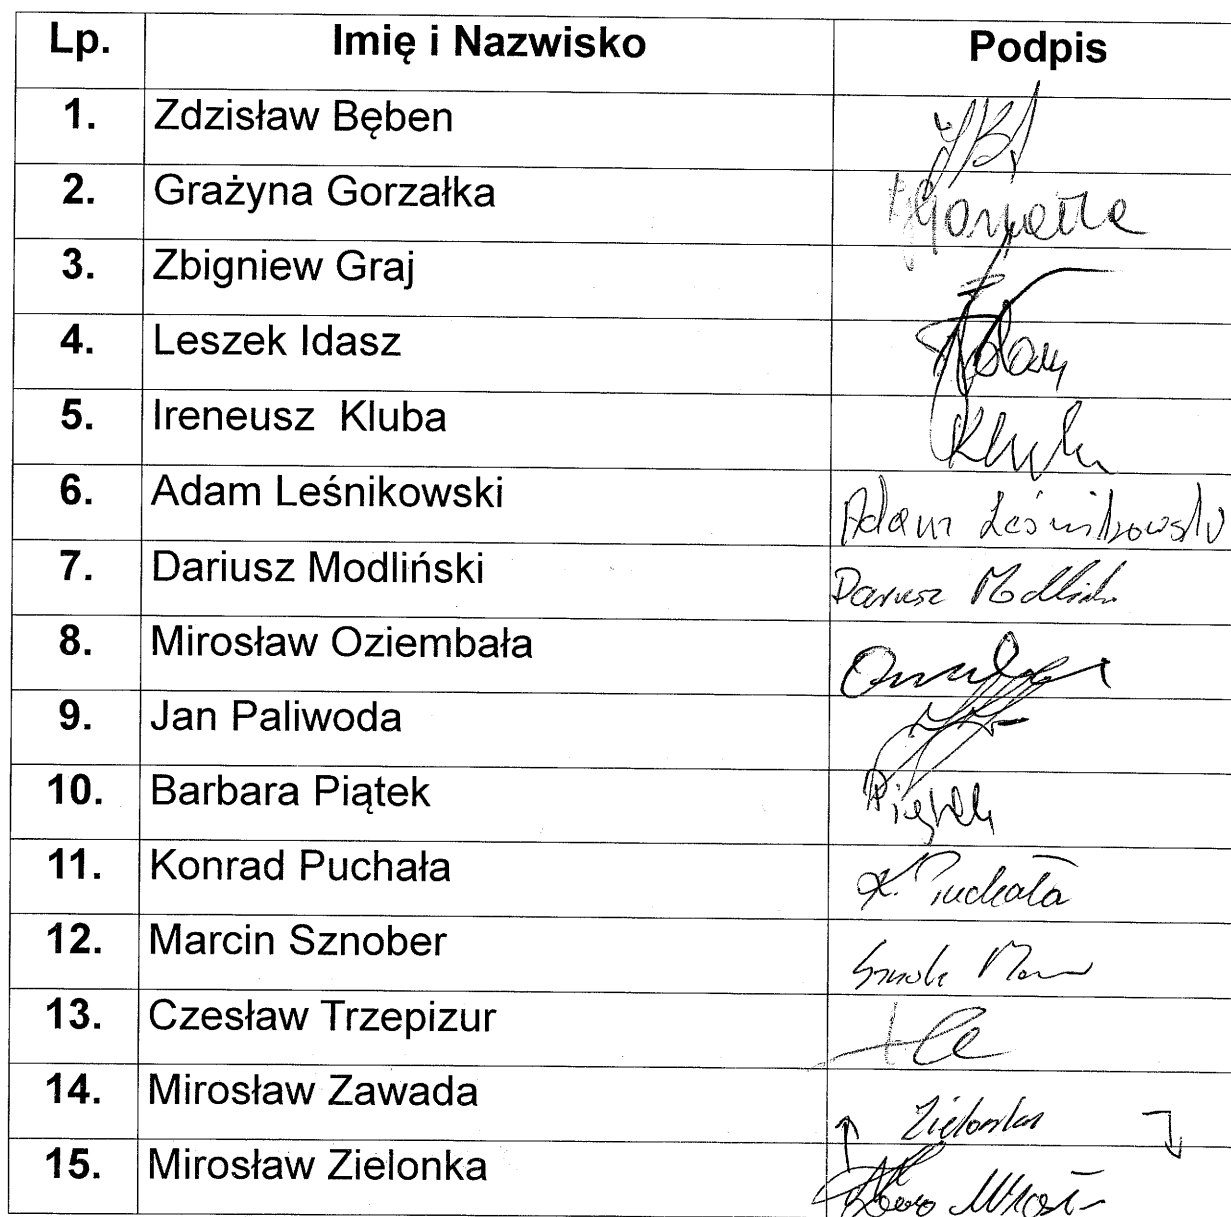 Lp. Imię i Nazwisko Podpis
1. Zdzisław Bęben
2. Grażyna Gorzałka
3. Zbigniew Graj
4. Leszek Idasz
5. Ireneusz Kluba
6. Adam Leśnikowski Adam Leśnikowski
7. Dariusz Modliński Dariusz
8. Mirosław Oziembała
9. Jan Paliwoda
10. Barbara Piątek
11. Konrad Puchała K. Puchała
12. Marcin Sznober
13. Czesław Trzepizur
14. Mirosław Zawada Zielonka
15. Mirosław Zielonka